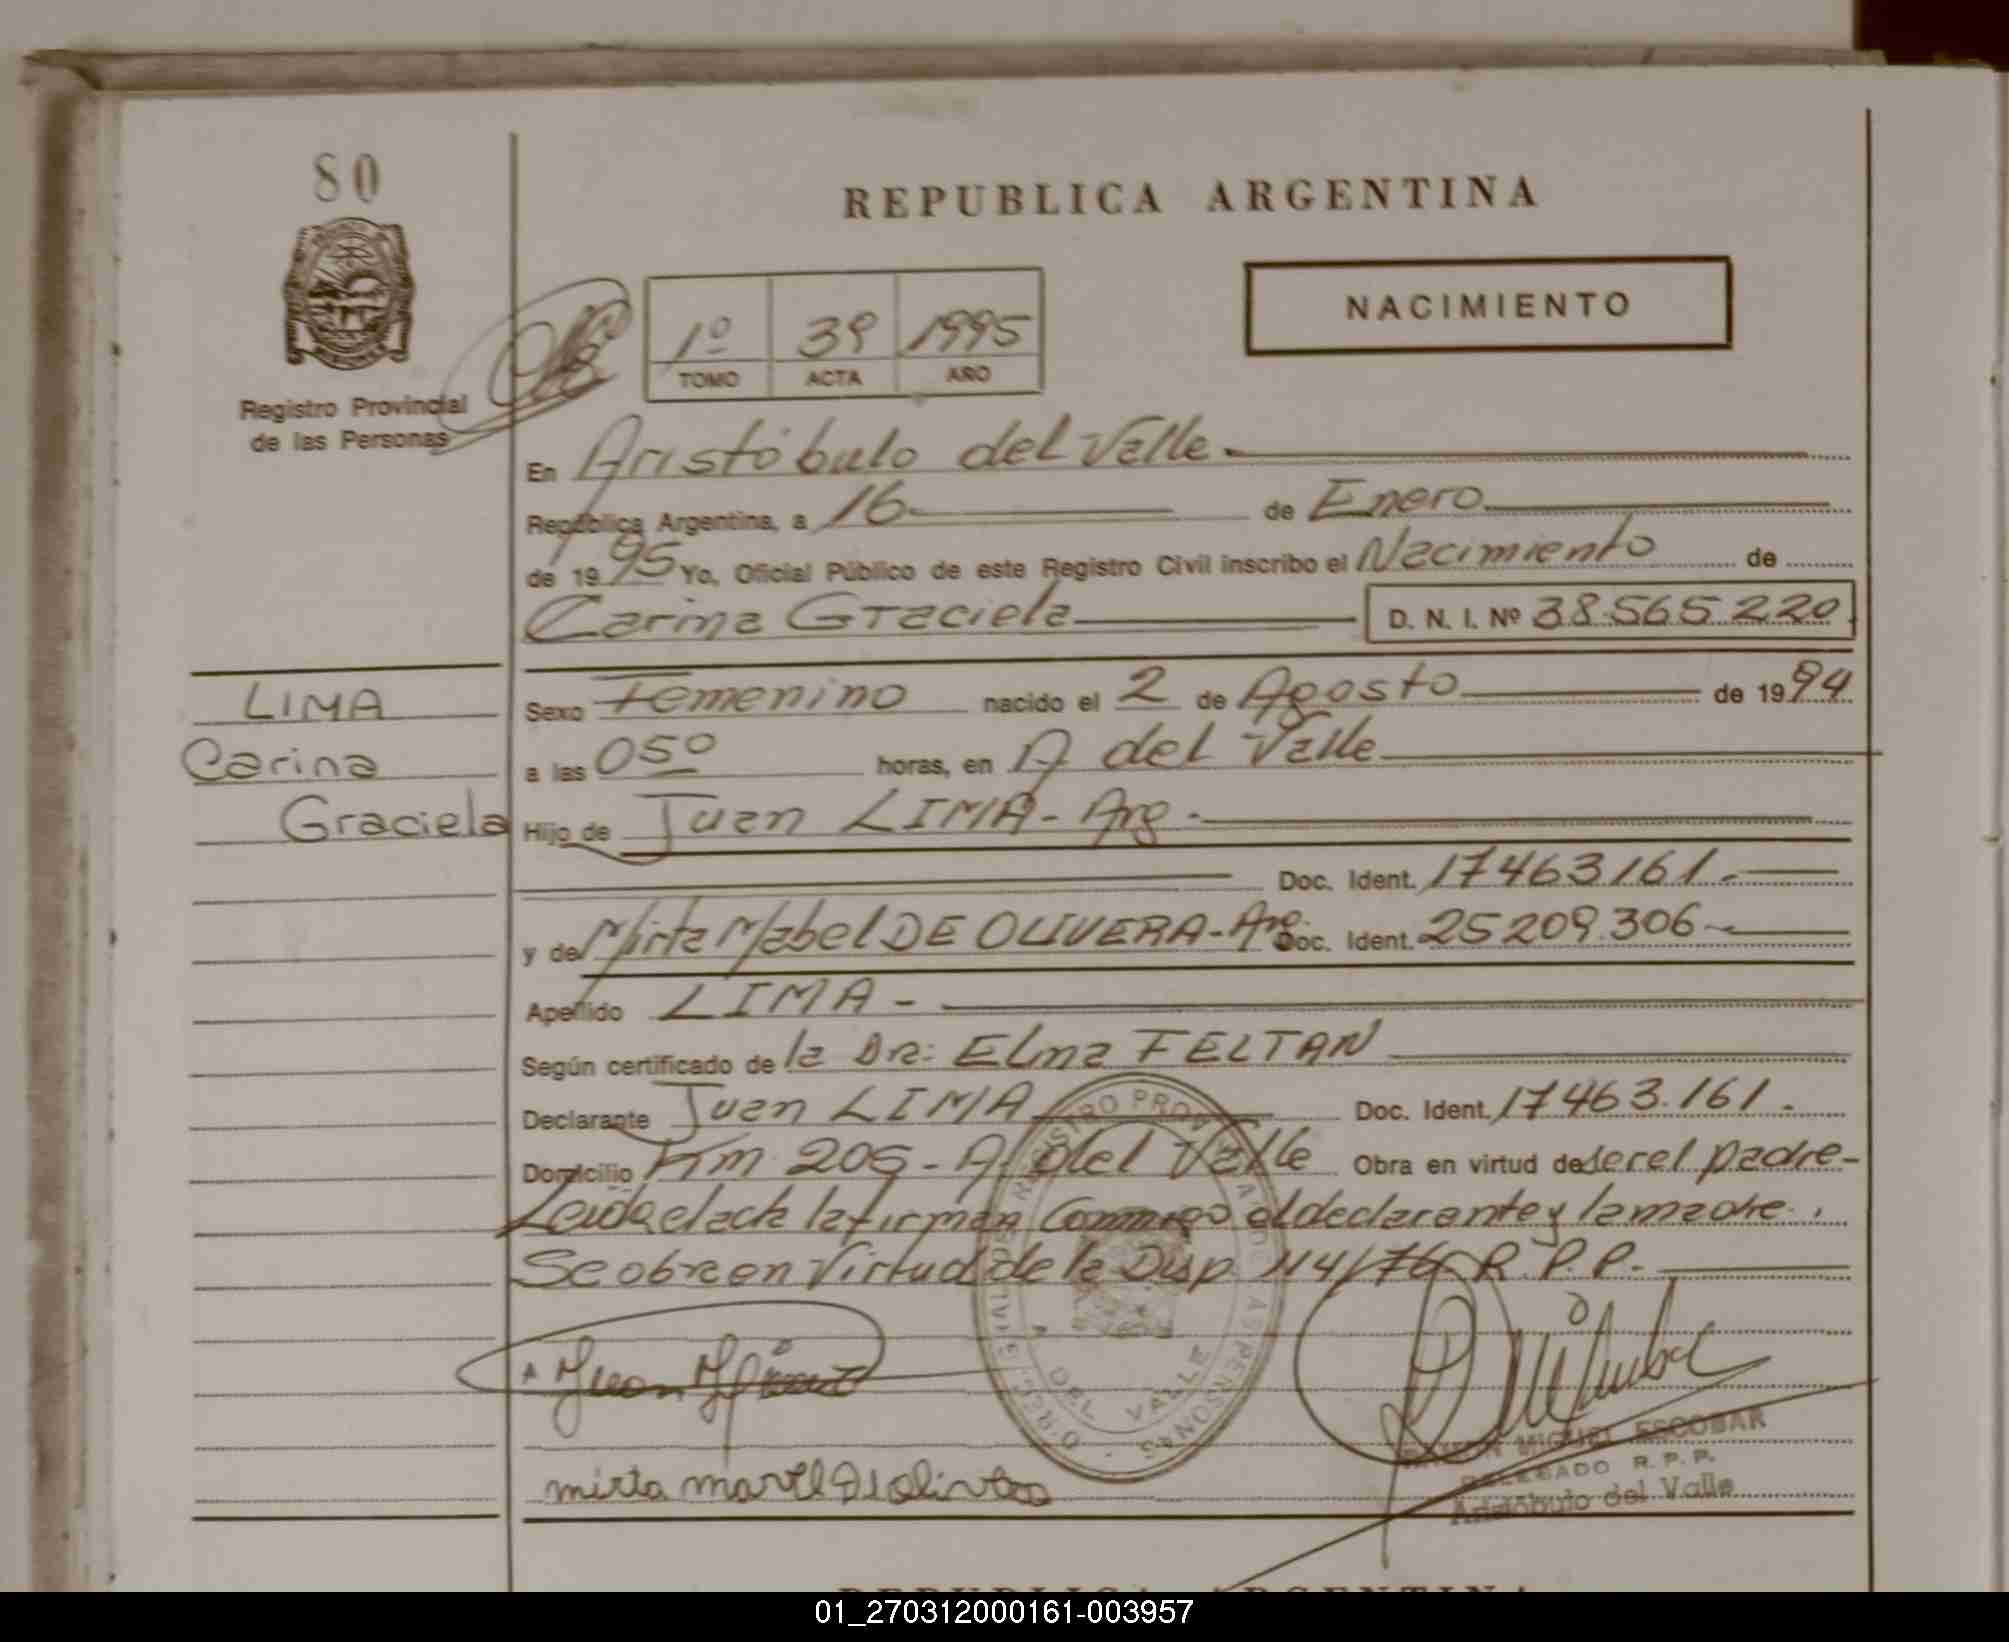 80
REPUBLICA ARGENTINA
NACIMIENTO
1º 39 1995
TOMO ACTA AÑO
Registro Provincial
de las Personas
En Aristóbulo del Valle
República Argentina, a 16 de Enero
de 1995 Yo, Oficial Público de este Registro Civil inscribo el Nacimiento de
Carina Graciela D. N. I. Nº 38.565.220
LIMA
Carina
Graciela
Sexo Femenino nacido el 2 de Agosto de 1994
a las 05º horas, en A del Valle
Hijo de Juan LIMA - Arg -
Doc. Ident. 17463161.-
y de Mirta Mabel DE OLIVERA - Arg. Doc. Ident. 25209.306-
Apellido LIMA -
Según certificado de la Dra: Elma FELTAN
Declarante Juan LIMA Doc. Ident. 17463.161.
Domicilio Km 205 - A. del Valle Obra en virtud de ser el padre -
Leida el acta la firman Conmigo el declarante y la madre.
Se obra en Virtud de la Disp. 114/76 R. P. P.
mirta
REGISTRO PROVINCIAL DE LAS PERSONAS
DEL VALLE
RAMON MIGUEL ESCOBAR
DELEGADO R. P. P.
Aristóbulo del Valle
REPUBLICA ARGENTINA
01_270312000161-003957